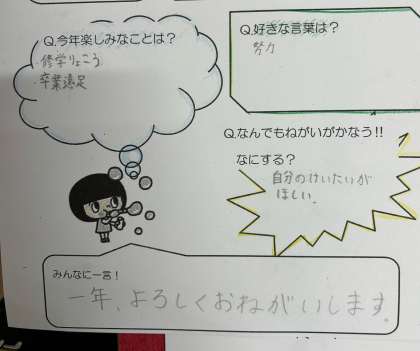 Q.今年楽しみなことは?
・修学りょこう
・卒業遠足
Q.好きな言葉は?
努力
Q.なんでもねがいがかなう!!
なにする?
自分のけいたいが
ほしい。
みんなに一言!
一年、よろしくおねがいします。